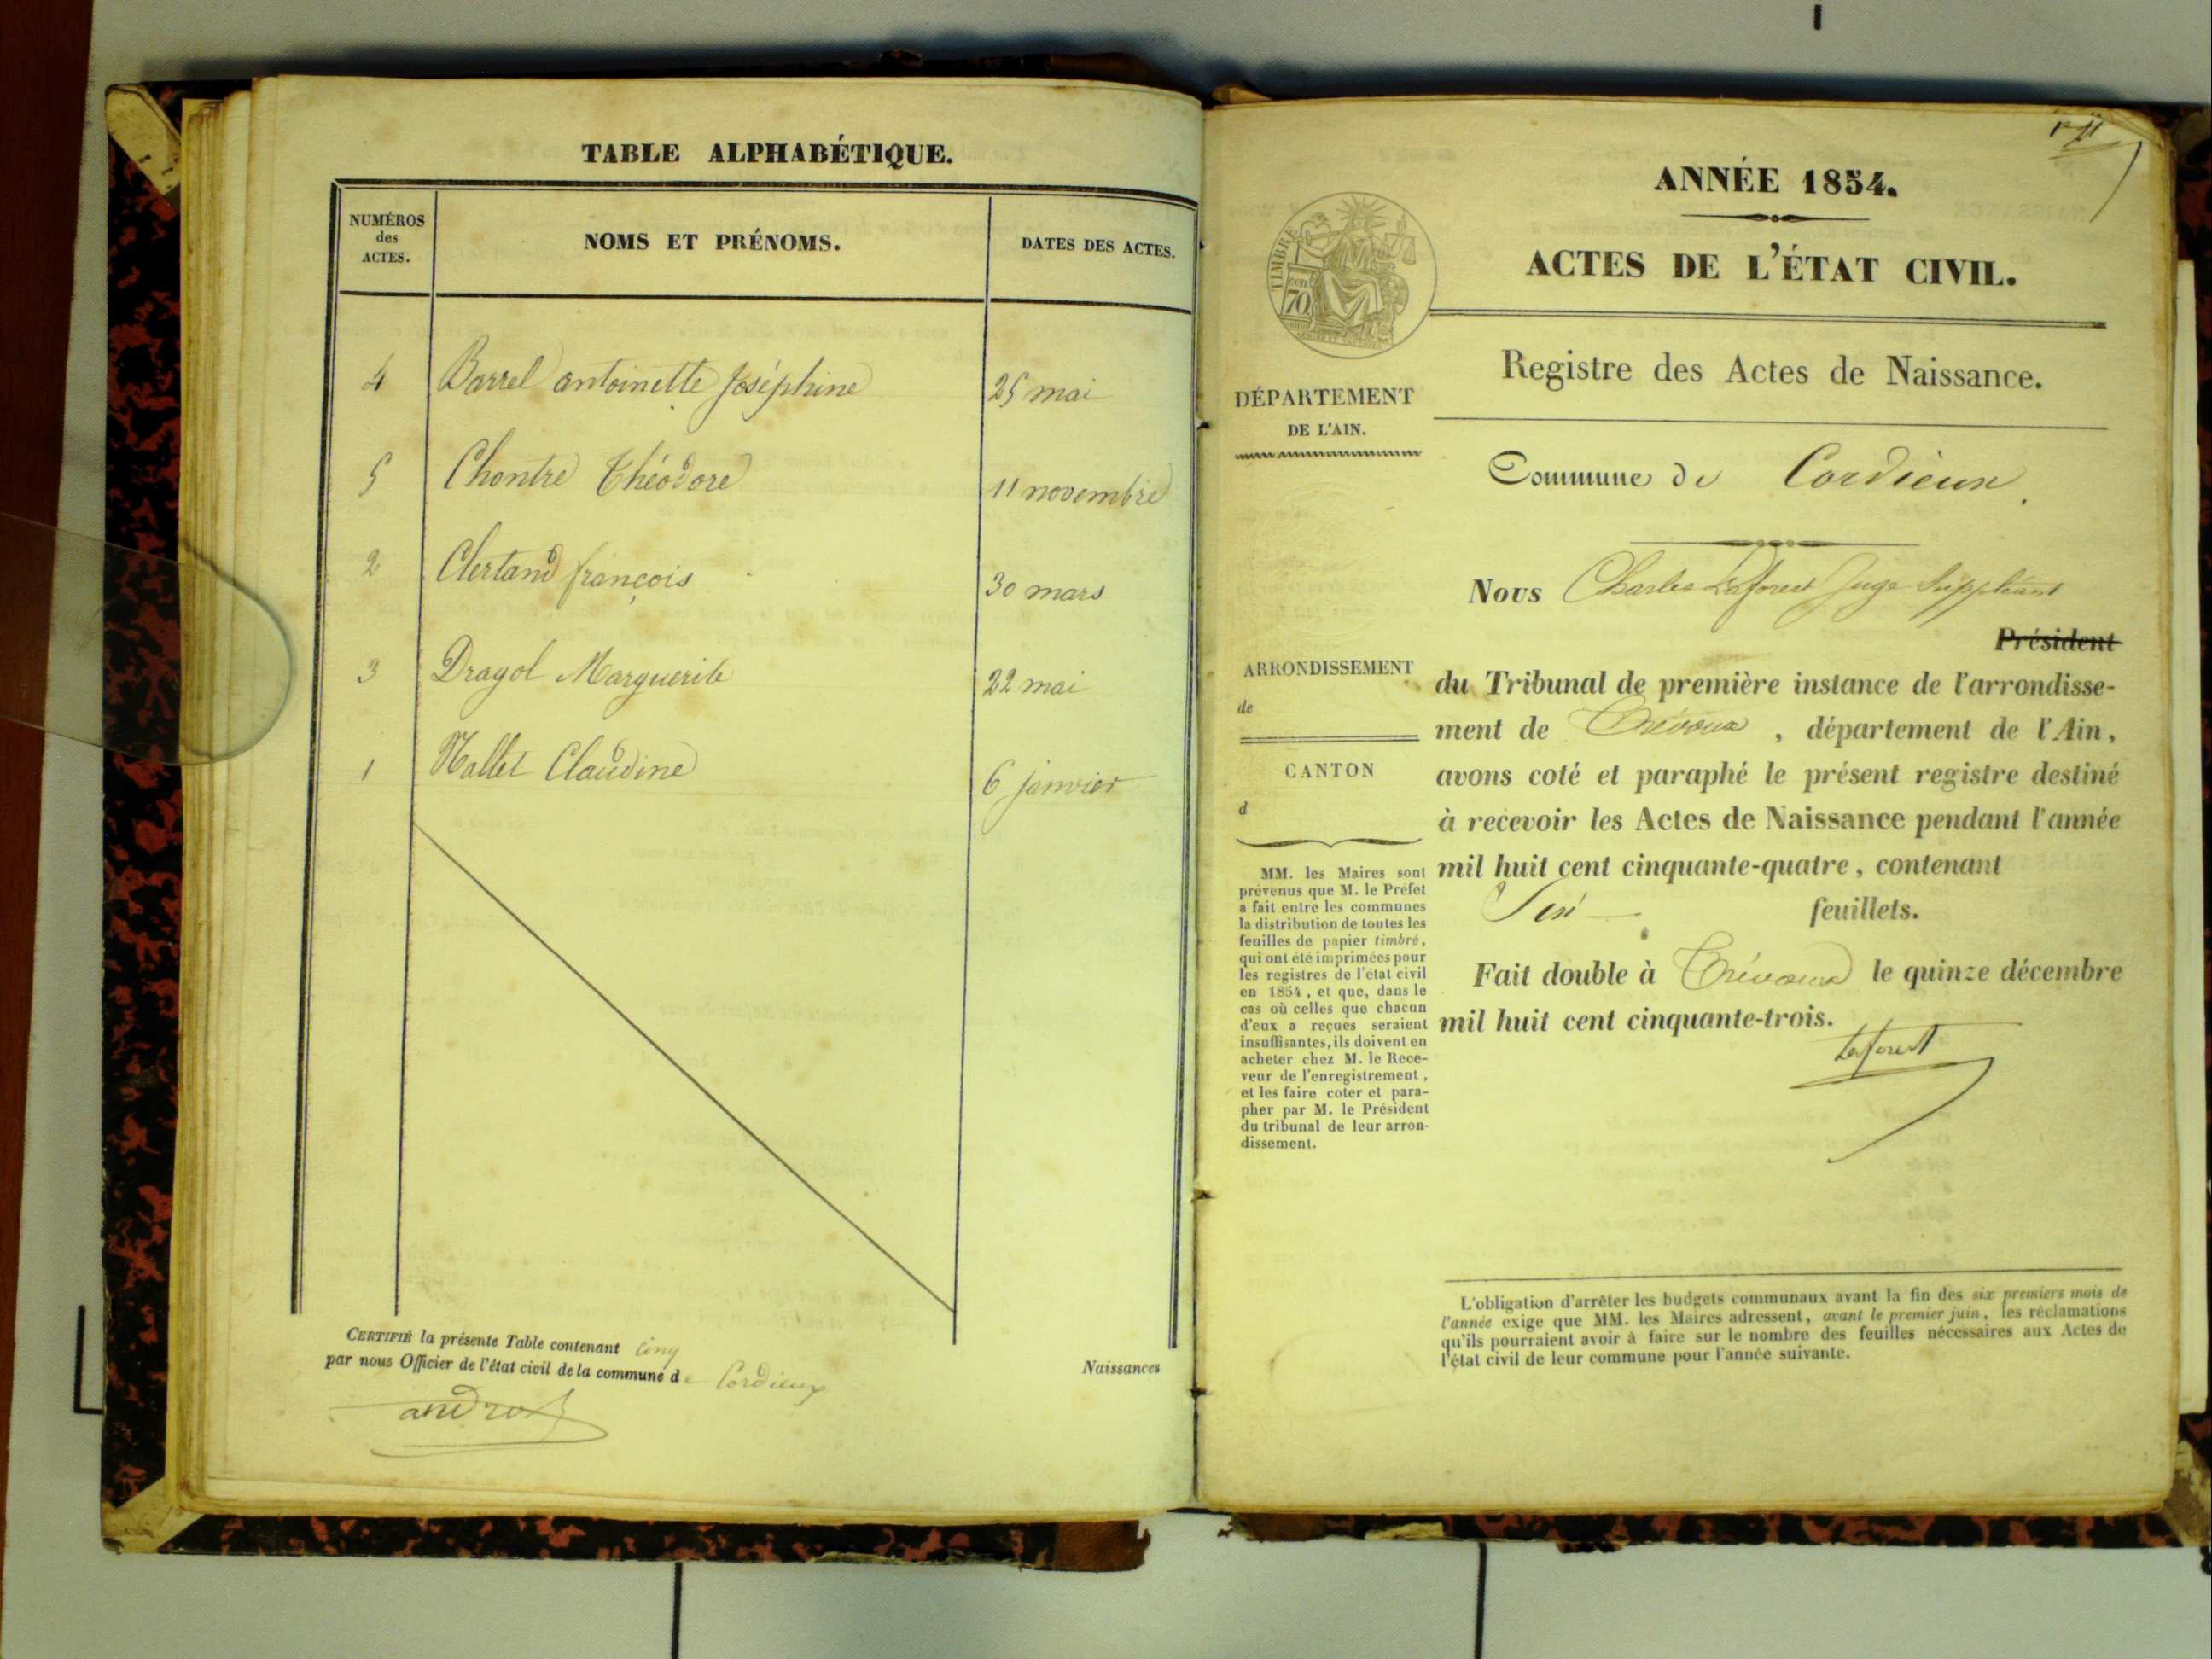 TABLE ALPHABÉTIQUE.
NUMÉROS
des
ACTES.
NOMS ET PRÉNOMS.
DATES DES ACTES.
4 Barrel antoinette Joséphine 25 mai
5 Chontre Théodore 11 novembre
2 Clertand françois 30 mars
3 Dragol Marguerite 22 mai
1 Mallet Claudine 6 janvier
CERTIFIÉ la présente Table contenant cinq Naissances
par nous Officier de l'état civil de la commune de Cordieux
ANNÉE 1854.
ACTES DE L'ÉTAT CIVIL.
TIMBRE
70
Registre des Actes de Naissance.
DÉPARTEMENT
DE L'AIN.
Commune de Cordieux.
Nous Charles Laforest Juge Suppléant
Président
ARRONDISSEMENT
de
CANTON
d
du Tribunal de première instance de l'arrondisse-
ment de Trévoux, département de l'Ain,
avons coté et paraphé le présent registre destiné
à recevoir les Actes de Naissance pendant l'année
mil huit cent cinquante-quatre, contenant
Six feuillets.
Fait double à Trévoux le quinze décembre
mil huit cent cinquante-trois.
Laforest
MM. les Maires sont
prévenus que M. le Préfet
a fait entre les communes
la distribution de toutes les
feuilles de papier timbré,
qui ont été imprimées pour
les registres de l'état civil
en 1854, et que, dans le
cas où celles que chacun
d'eux a reçues seraient
insuffisantes, ils doivent en
acheter chez M. le Rece-
veur de l'enregistrement,
et les faire coter et para-
pher par M. le Président
du tribunal de leur arron-
dissement.
L'obligation d'arrêter les budgets communaux avant la fin des six premiers mois de
l'année exige que MM. les Maires adressent, avant le premier juin, les réclamations
qu'ils pourraient avoir à faire sur le nombre des feuilles nécessaires aux Actes de
l'état civil de leur commune pour l'année suivante.